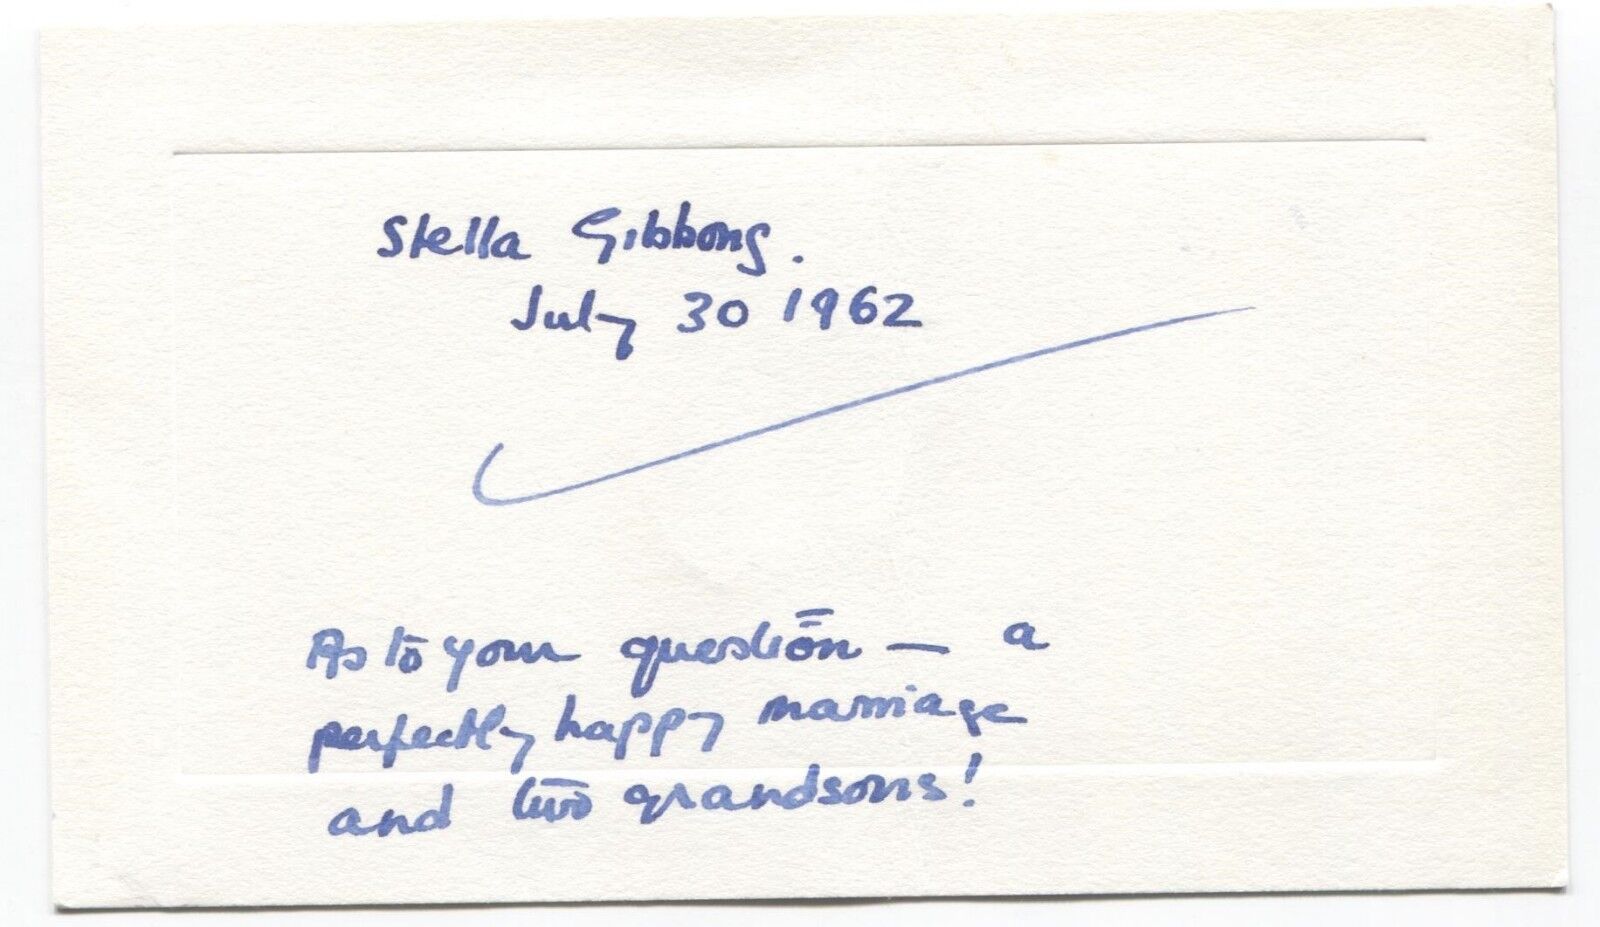 Stella Gibbons.
July 30 1962
As to your question — a
perfectly happy marriage
and two grandsons!